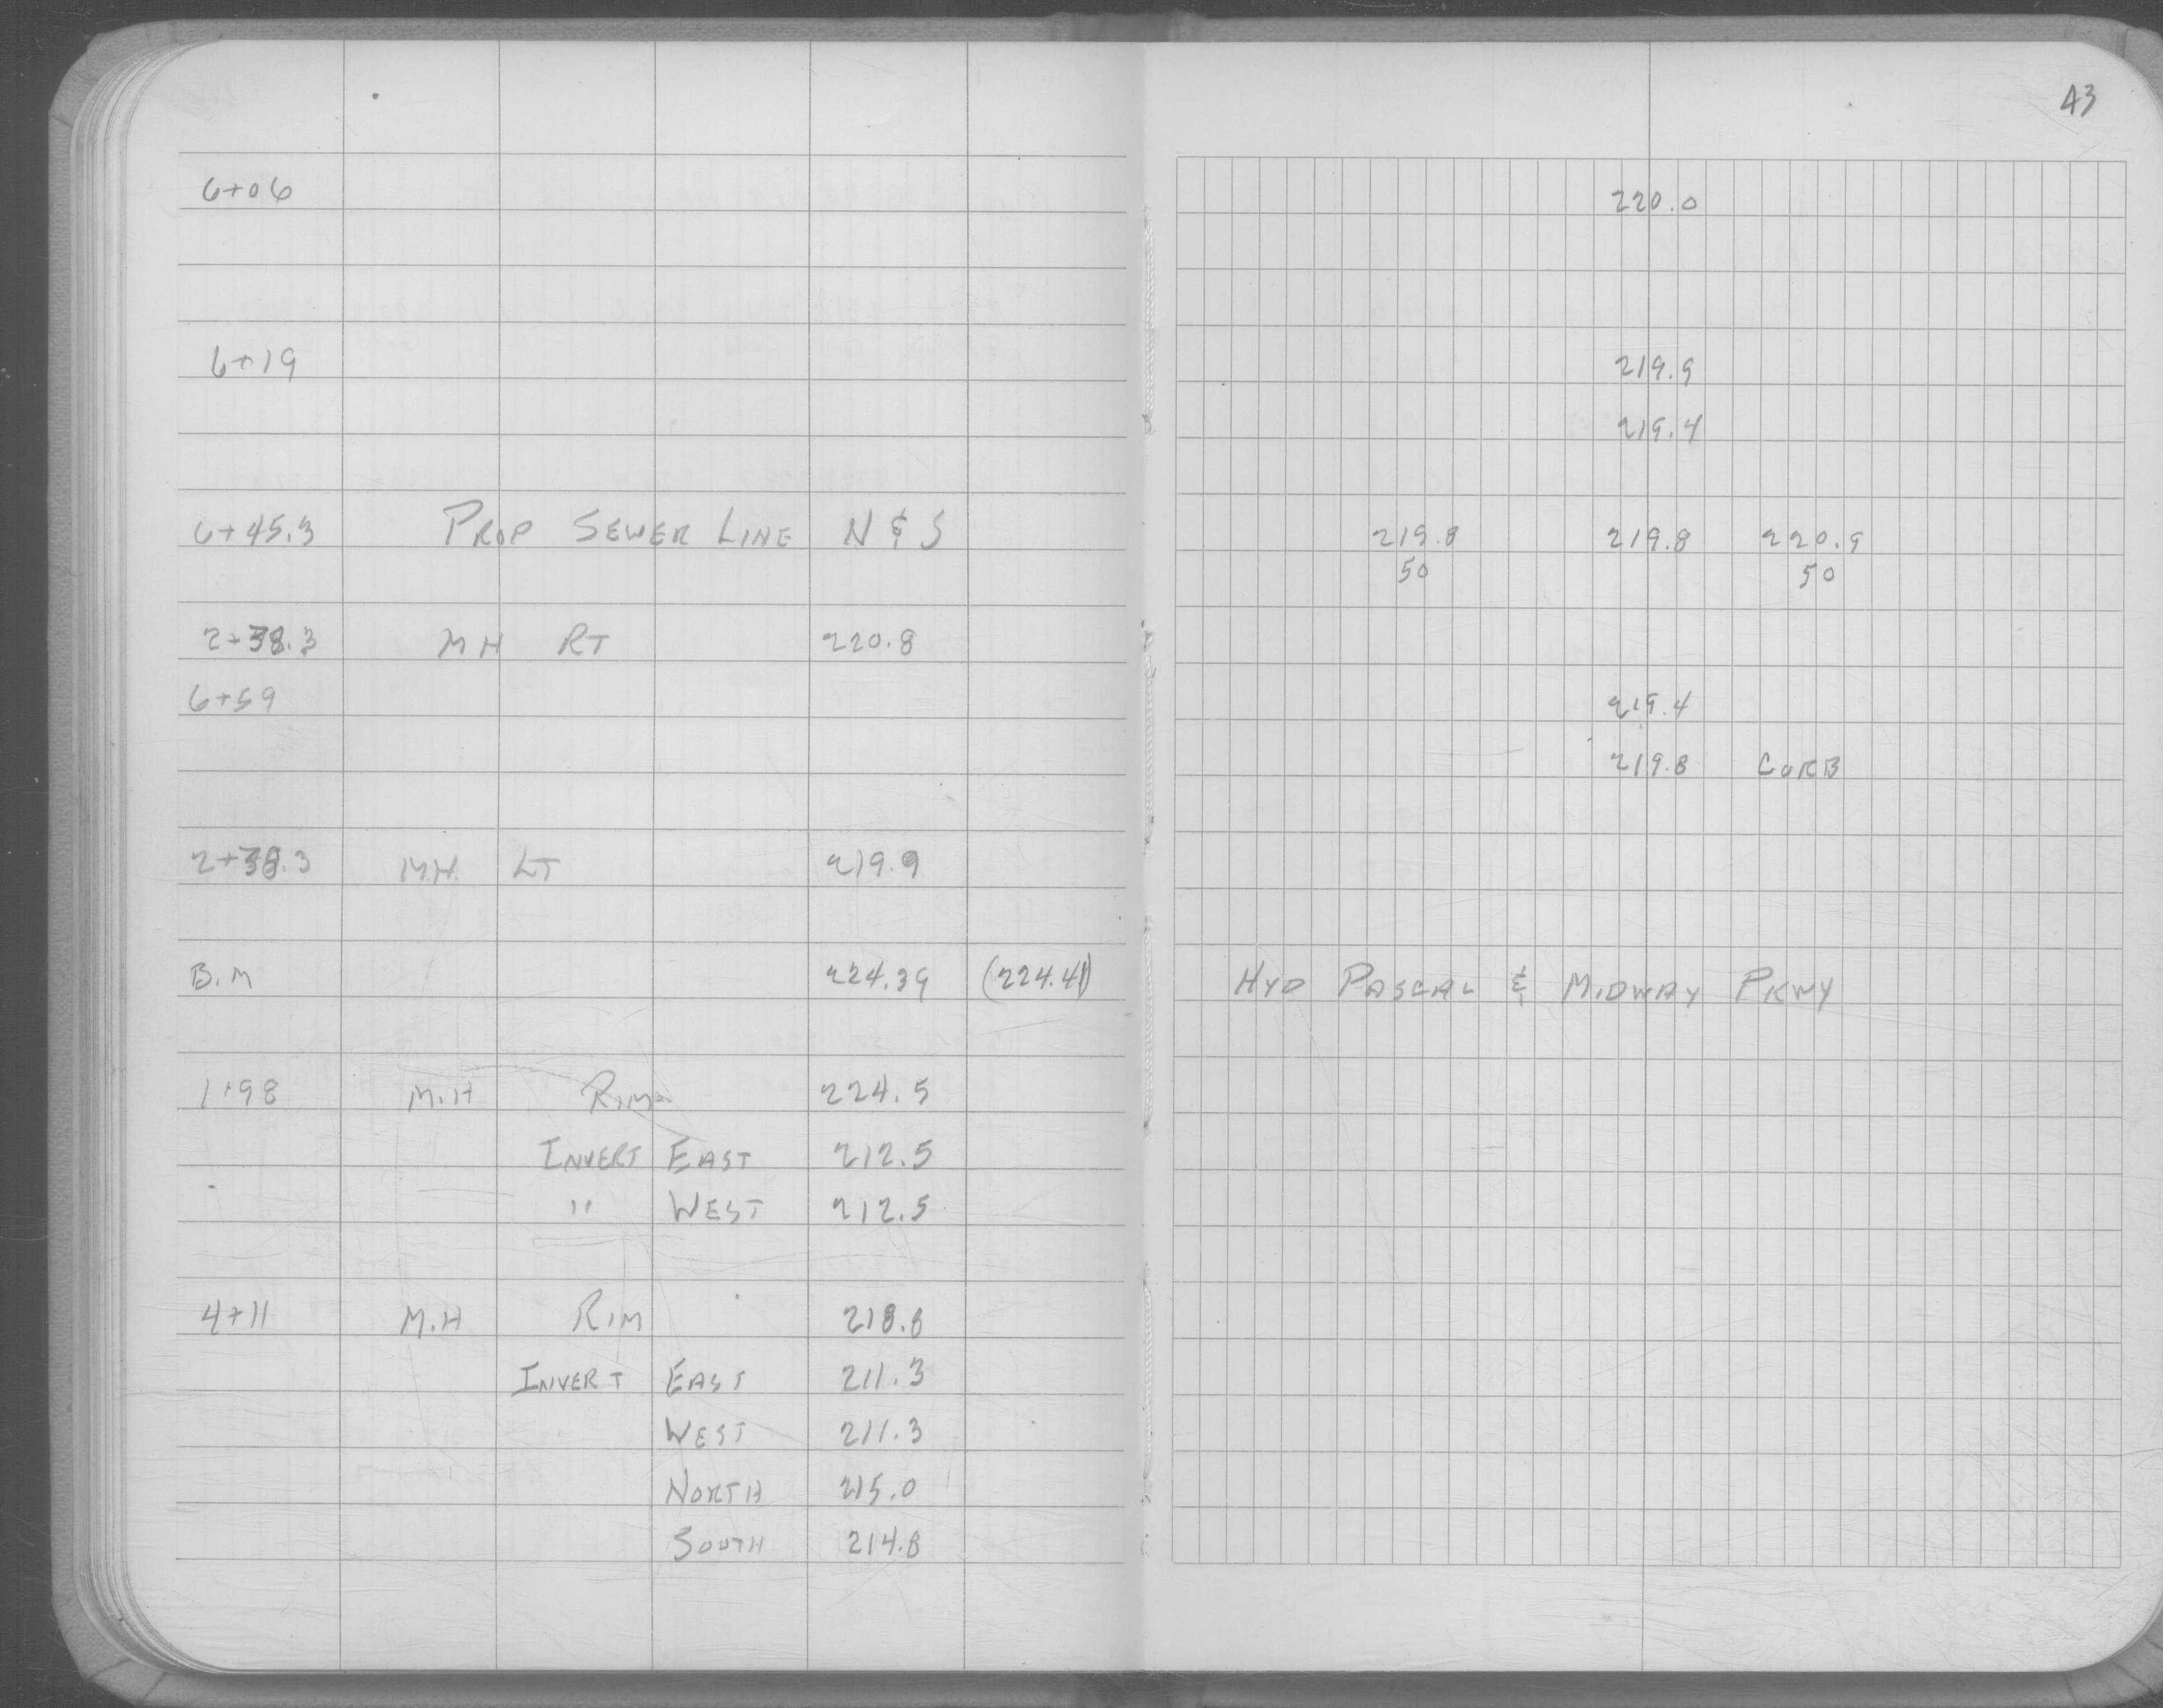 43
6+06 220.0
6+19 219.9
219.4
6+45.3 PROP SEWER LINE N & S 219.8 219.8 220.9
50 50
2+38.3 MH RT 220.8
6+59 219.4
219.8 CURB
2+38.3 M.H. LT 219.9
B.M 224.39 (224.41) HYD PASCAL & MIDWAY PKWY
1+98 M.H RIM 224.5
INVERT EAST 212.5
" WEST 212.5
4+11 M.H RIM 218.8
INVERT EAST 211.3
WEST 211.3
NORTH 215.0
SOUTH 214.8